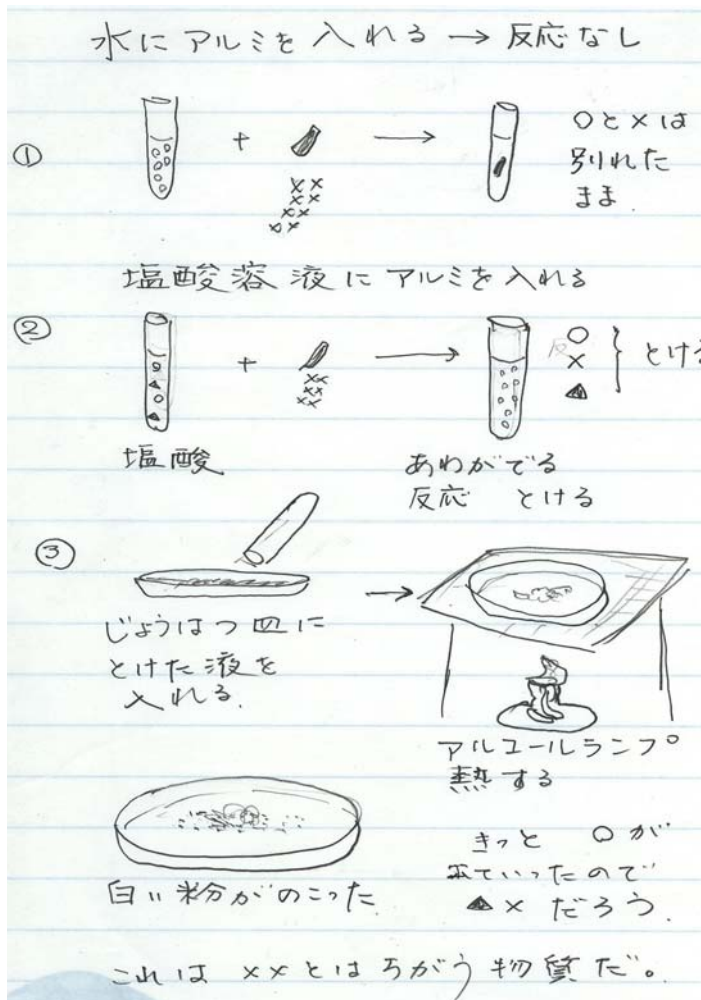 水にアルミを入れる → 反応なし
① + → ○と×は
別れた
まま.
塩酸溶液にアルミを入れる
② + → ○ × ▲ } とける
塩酸 あわがでる
反応 とける
③ →
じょうはつ皿に
とけた液を
入れる.
アルコールランプ
熱する
白い粉がのこった
きっと ○が
出ていったので
▲× だろう.
これは ××とはちがう物質だ。